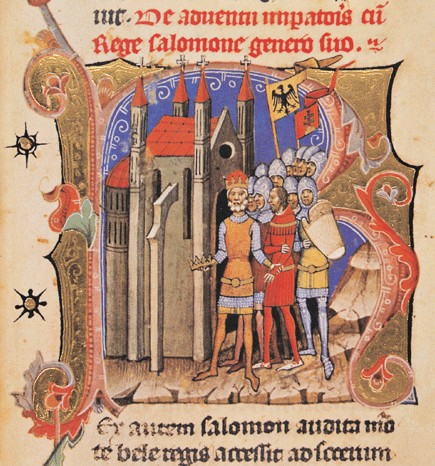 De aduentu impatoris cū
Rege salomone genero suo.
Ex autem salomon audita mor
te bele regis accessit ad socerum